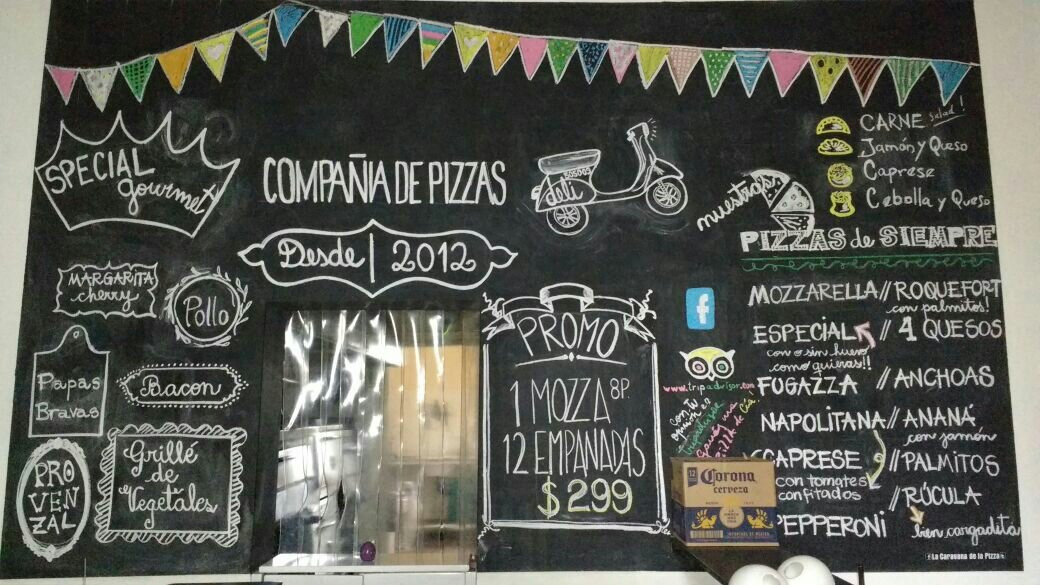 SPECIAL
gourmet
MARGARITA
cherry
Pollo
Papas
Bravas
Bacon
PRO
VEN
ZAL
Grillé
de
Vegetales
COMPAÑIA DE PIZZAS
Desde | 2012
deli
PROMO
1 MOZZA 8P.
12 EMPANADAS
$299
f
www.tripadvisor.com
con tu
Corona
cerveza
CARNE salad!
Jamón y Queso
Caprese
Cebolla y Queso
nuestras
PIZZAS de SIEMPRE
MOZZARELLA // ROQUEFORT
con palmitos!
ESPECIAL // 4 QUESOS
con o sin huevo
como quieras!!
FUGAZZA // ANCHOAS
NAPOLITANA // ANANÁ
con jamón
CAPRESE // PALMITOS
con tomates
confitados
// RÚCULA
PEPPERONI
bien cargadita
La Caravana de la Pizza